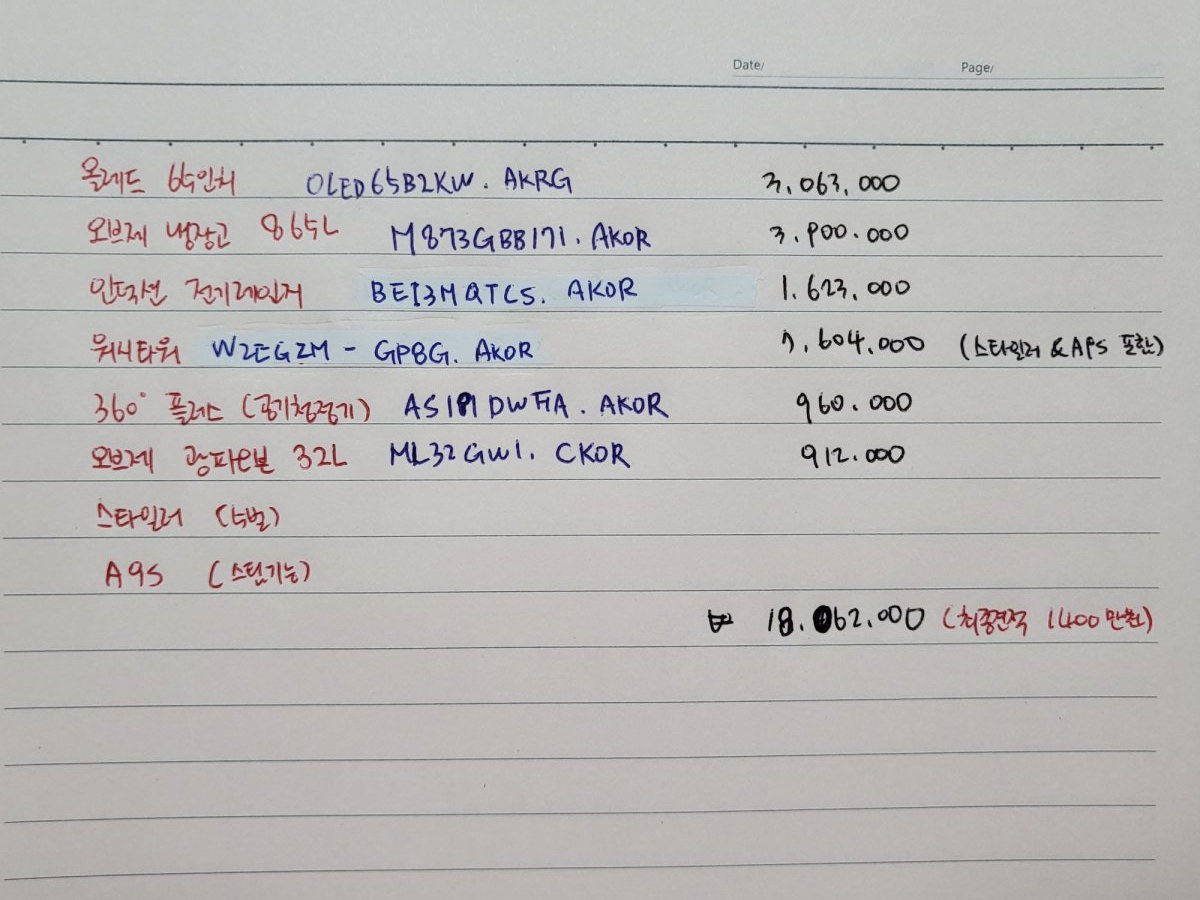 Date/ Page/
올레드 65인치 OLED65B2KW. AKRG 3,063,000
오브제 냉장고 865L M873GBB171. AKOR 3.900.000
인덕션 전기레인지 BEI3MQTCS. AKOR 1.623,000
워시타워 W2EGZM - GP8G. AKOR 7.604.000 (스타일러 & A9S 포함)
360° 플레스 (공기청정기) AS191DWFA. AKOR 960.000
오브제 광파오븐 32L ML32GW1. CKOR 912.000
스타일러 (5벌)
A9S (스팀기능)
₩ 18.062.000 (최종견적 1400만원)